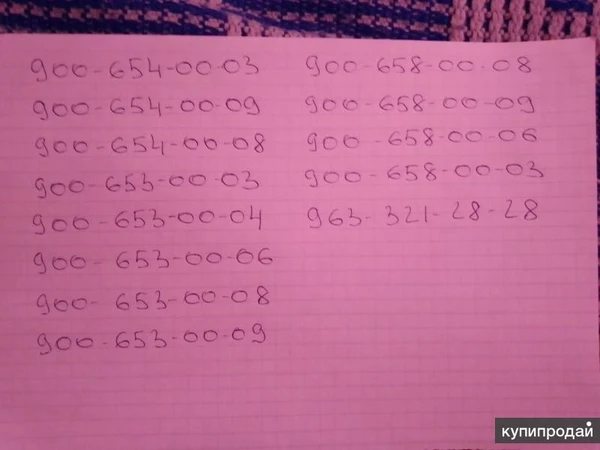 900-654-00-03
900-654-00-09
900-654-00-08
900-653-00-03
900-653-00-04
900-653-00-06
900-653-00-08
900-653-00-09
900-658-00-08
900-658-00-09
900-658-00-06
900-658-00-03
963-321-28-28
купипродай